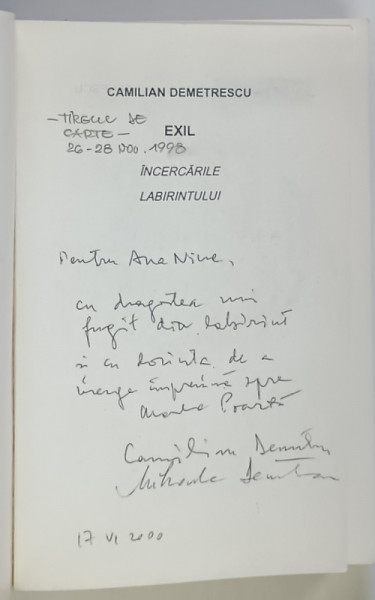 CAMILIAN DEMETRESCU
- TÎRGUL DE
CARTE -
EXIL
26-28 NOV. 1998
ÎNCERCĂRILE
LABIRINTULUI
Pentru Ana Nine,
cu dragostea unui
fugit din labirint
si cu dorinta de a
merge împreună spre
Marea Poartă
Camilian Demetrescu
Mihaela Demetrescu
17 VI 2000